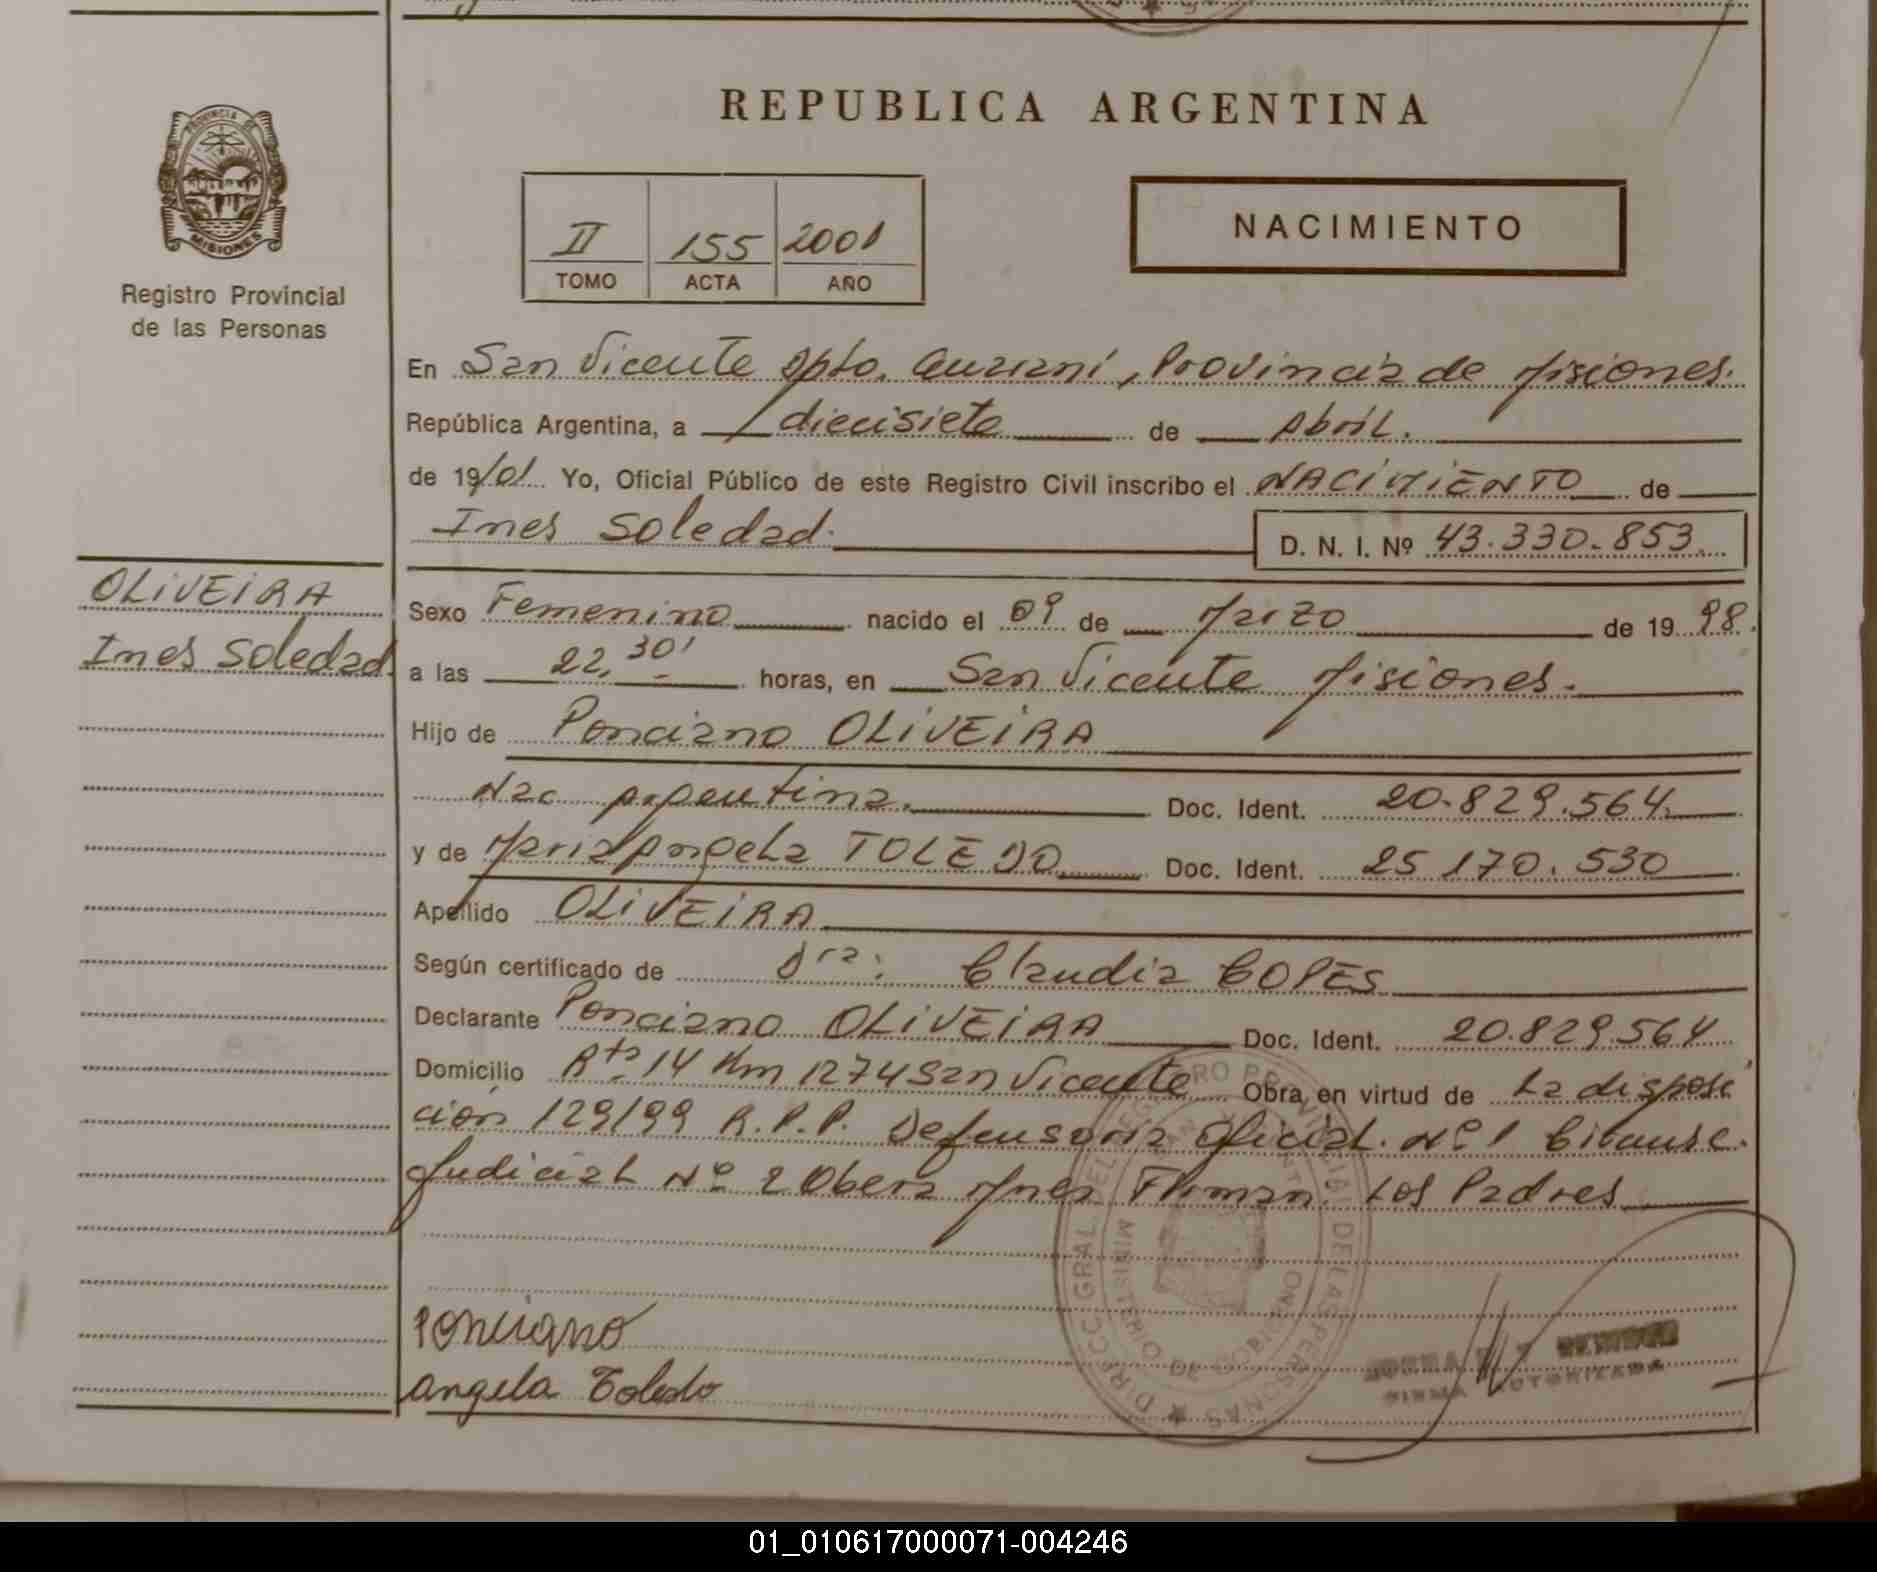 REPUBLICA ARGENTINA
PROVINCIA DE
MISIONES
Registro Provincial
de las Personas
II 155 2001
TOMO ACTA AÑO
NACIMIENTO
En San Vicente Dpto. Guarani, Provincia de Misiones.
República Argentina, a diecisiete de Abril.
de 19/01 Yo, Oficial Público de este Registro Civil inscribo el NACIMIENTO de
Ines Soledad. D. N. I. Nº 43.330.853.
OLIVEIRA
Ines Soledad
Sexo Femenino nacido el 09 de Marzo de 19 98.
a las 22,30' horas, en San Vicente Misiones.
Hijo de Ponciano OLIVEIRA
Nac Argentina. Doc. Ident. 20.829.564.
y de Maria Angela TOLEDO Doc. Ident. 25 170.530
Apellido OLIVEIRA
Según certificado de Dra: Claudia COPES
Declarante Ponciano OLIVEIRA Doc. Ident. 20.829.564
Domicilio Rta 14 Km 1274 San Vicente Obra en virtud de La disposi
ción 129/99 R.P.P. Defensoria Oficial. Nº 1
Judicial Nº 2 Obera Mnes Firman Los Padres
Ponciano
Angela Toledo
FIRMA AUTORIZADA
01_010617000071-004246